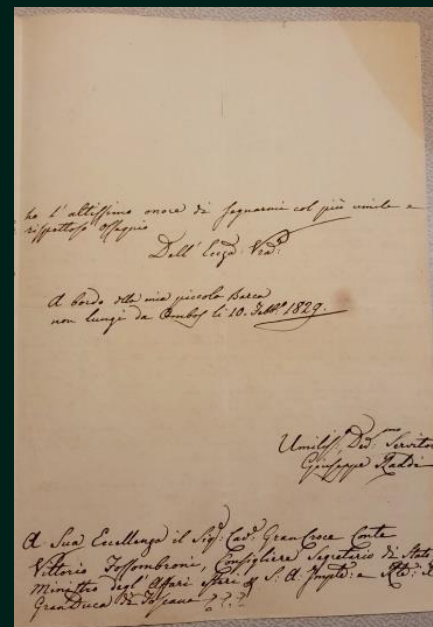 ho l'altissimo onore di segnarmi col più umile e
rispettoso ossequio
Dell' Eccza. Vra.
A bordo della mia piccola Barca
non lungi da Ombos li 10. Febb.o 1829.
Umiliss.o Dev.mo Servitore
Giuseppe Raddi
A Sua Eccellenza il Sigr. Cav. Gran Croce Conte
Vittorio Fossombroni, Consigliere Segretario di Stato
Ministro degl' Affari Esteri di S: A. Imple: e Rle: Il
Gran Duca di Toscana